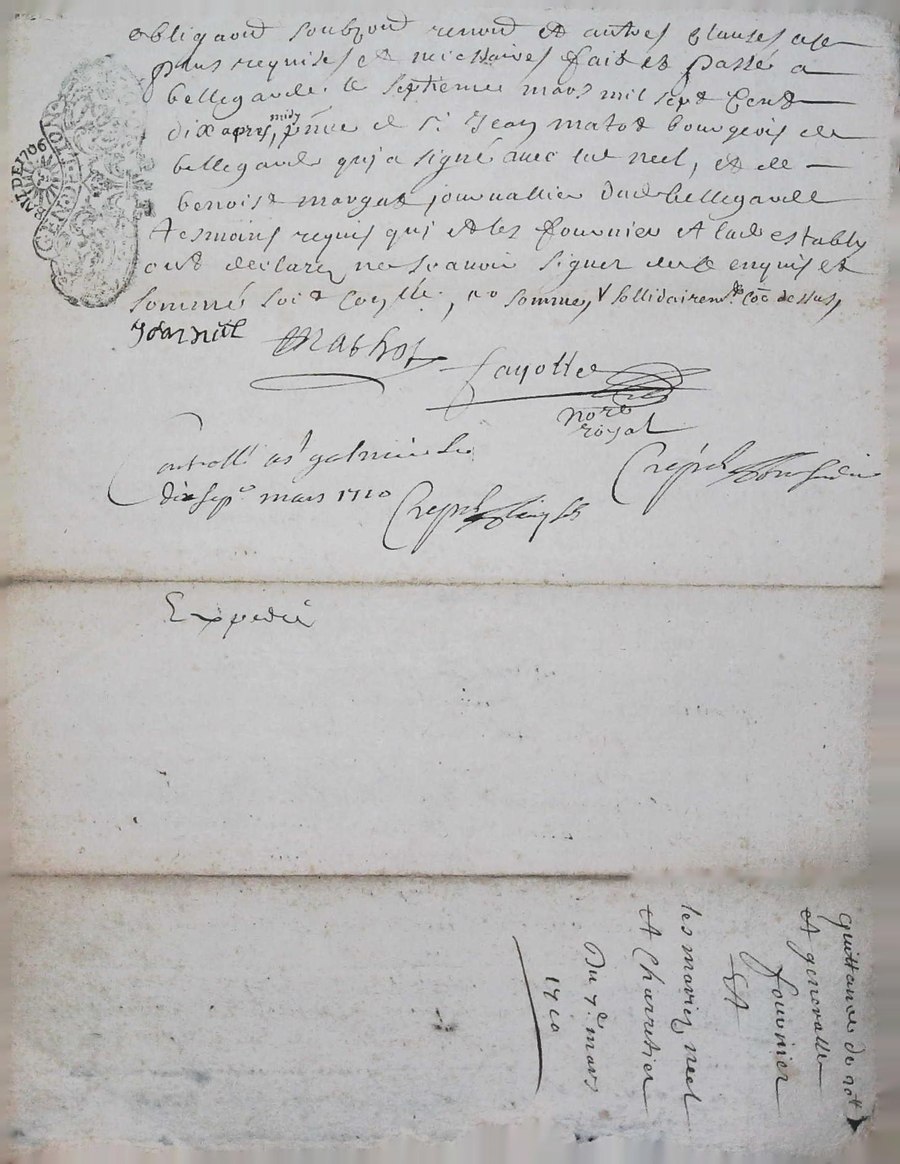 obligaōns soubzons renonōns et autres clauses
plus requises et necessaires fait et passé a
bellegarde le septieme mars mil sept Cent
dix apres midy, pñce de sʳ Jean mathot bourgeois de
bellegarde qui a signé avec led neel, et de
benoist margat journallier dud bellegarde
tesmoins requis qui et les fournier et lad estably
ont declaré ne scavoir signer de ce enquis et
sommé soit Coñllé, sommes sollidairemᵗ coē dessus,
Mathot
fayolle
noʳᵉ
royal
Controllé a sᵗ galmier le
dix sepᵉ mars 1710
Expedié
GEN DE LION
quittance de not
et generalle
fournier
et
les mariez neel
et Charretier
Du 7ᵉ mars
1710